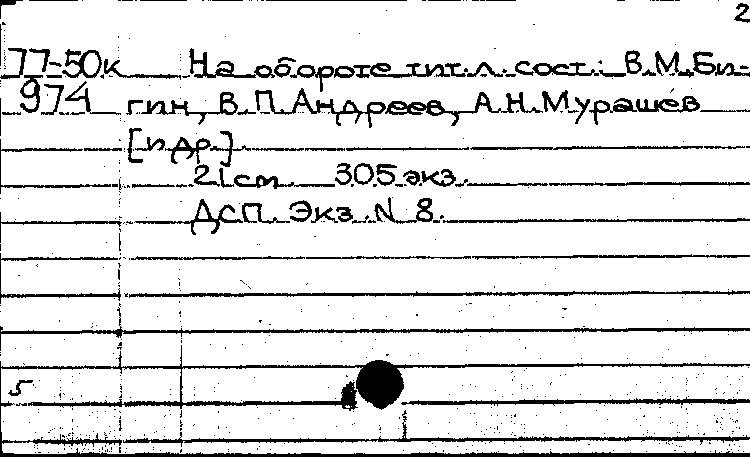 2
77-50к На обороте тит.л. сост.: В.М.Би-
974 гин, В.П.Андреев, А.Н.Мурашев
[и др.].
21 см. 305 экз.
ДСП. Экз. N 8.
5